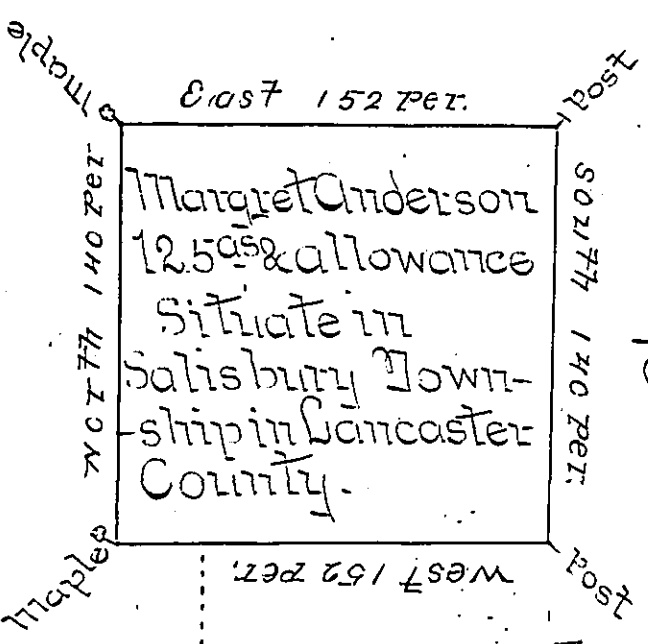 Maple
East 152 per.
Post
North 140 per
Margret Anderson
125 as & allowance
Situate in
Salisbury Town-
ship in Lancaster
County.
South 140 per.
Maple
West 152 per.
Post